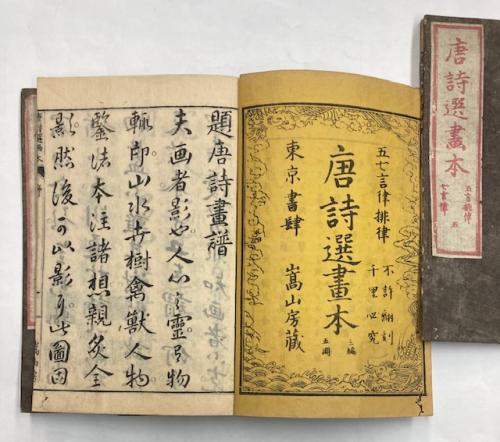 唐詩選畫本
五言排律
七言律
五
五七言律排律
不許翻刻
千里必究
唐詩選畫本
三編
五冊
東京書肆 嵩山房藏
題唐詩畫譜
夫画者影也人心之靈与物
輙印山水卉樹禽獸人物
鑒諸本注諸想親炙全
影然後可以影 此圖固